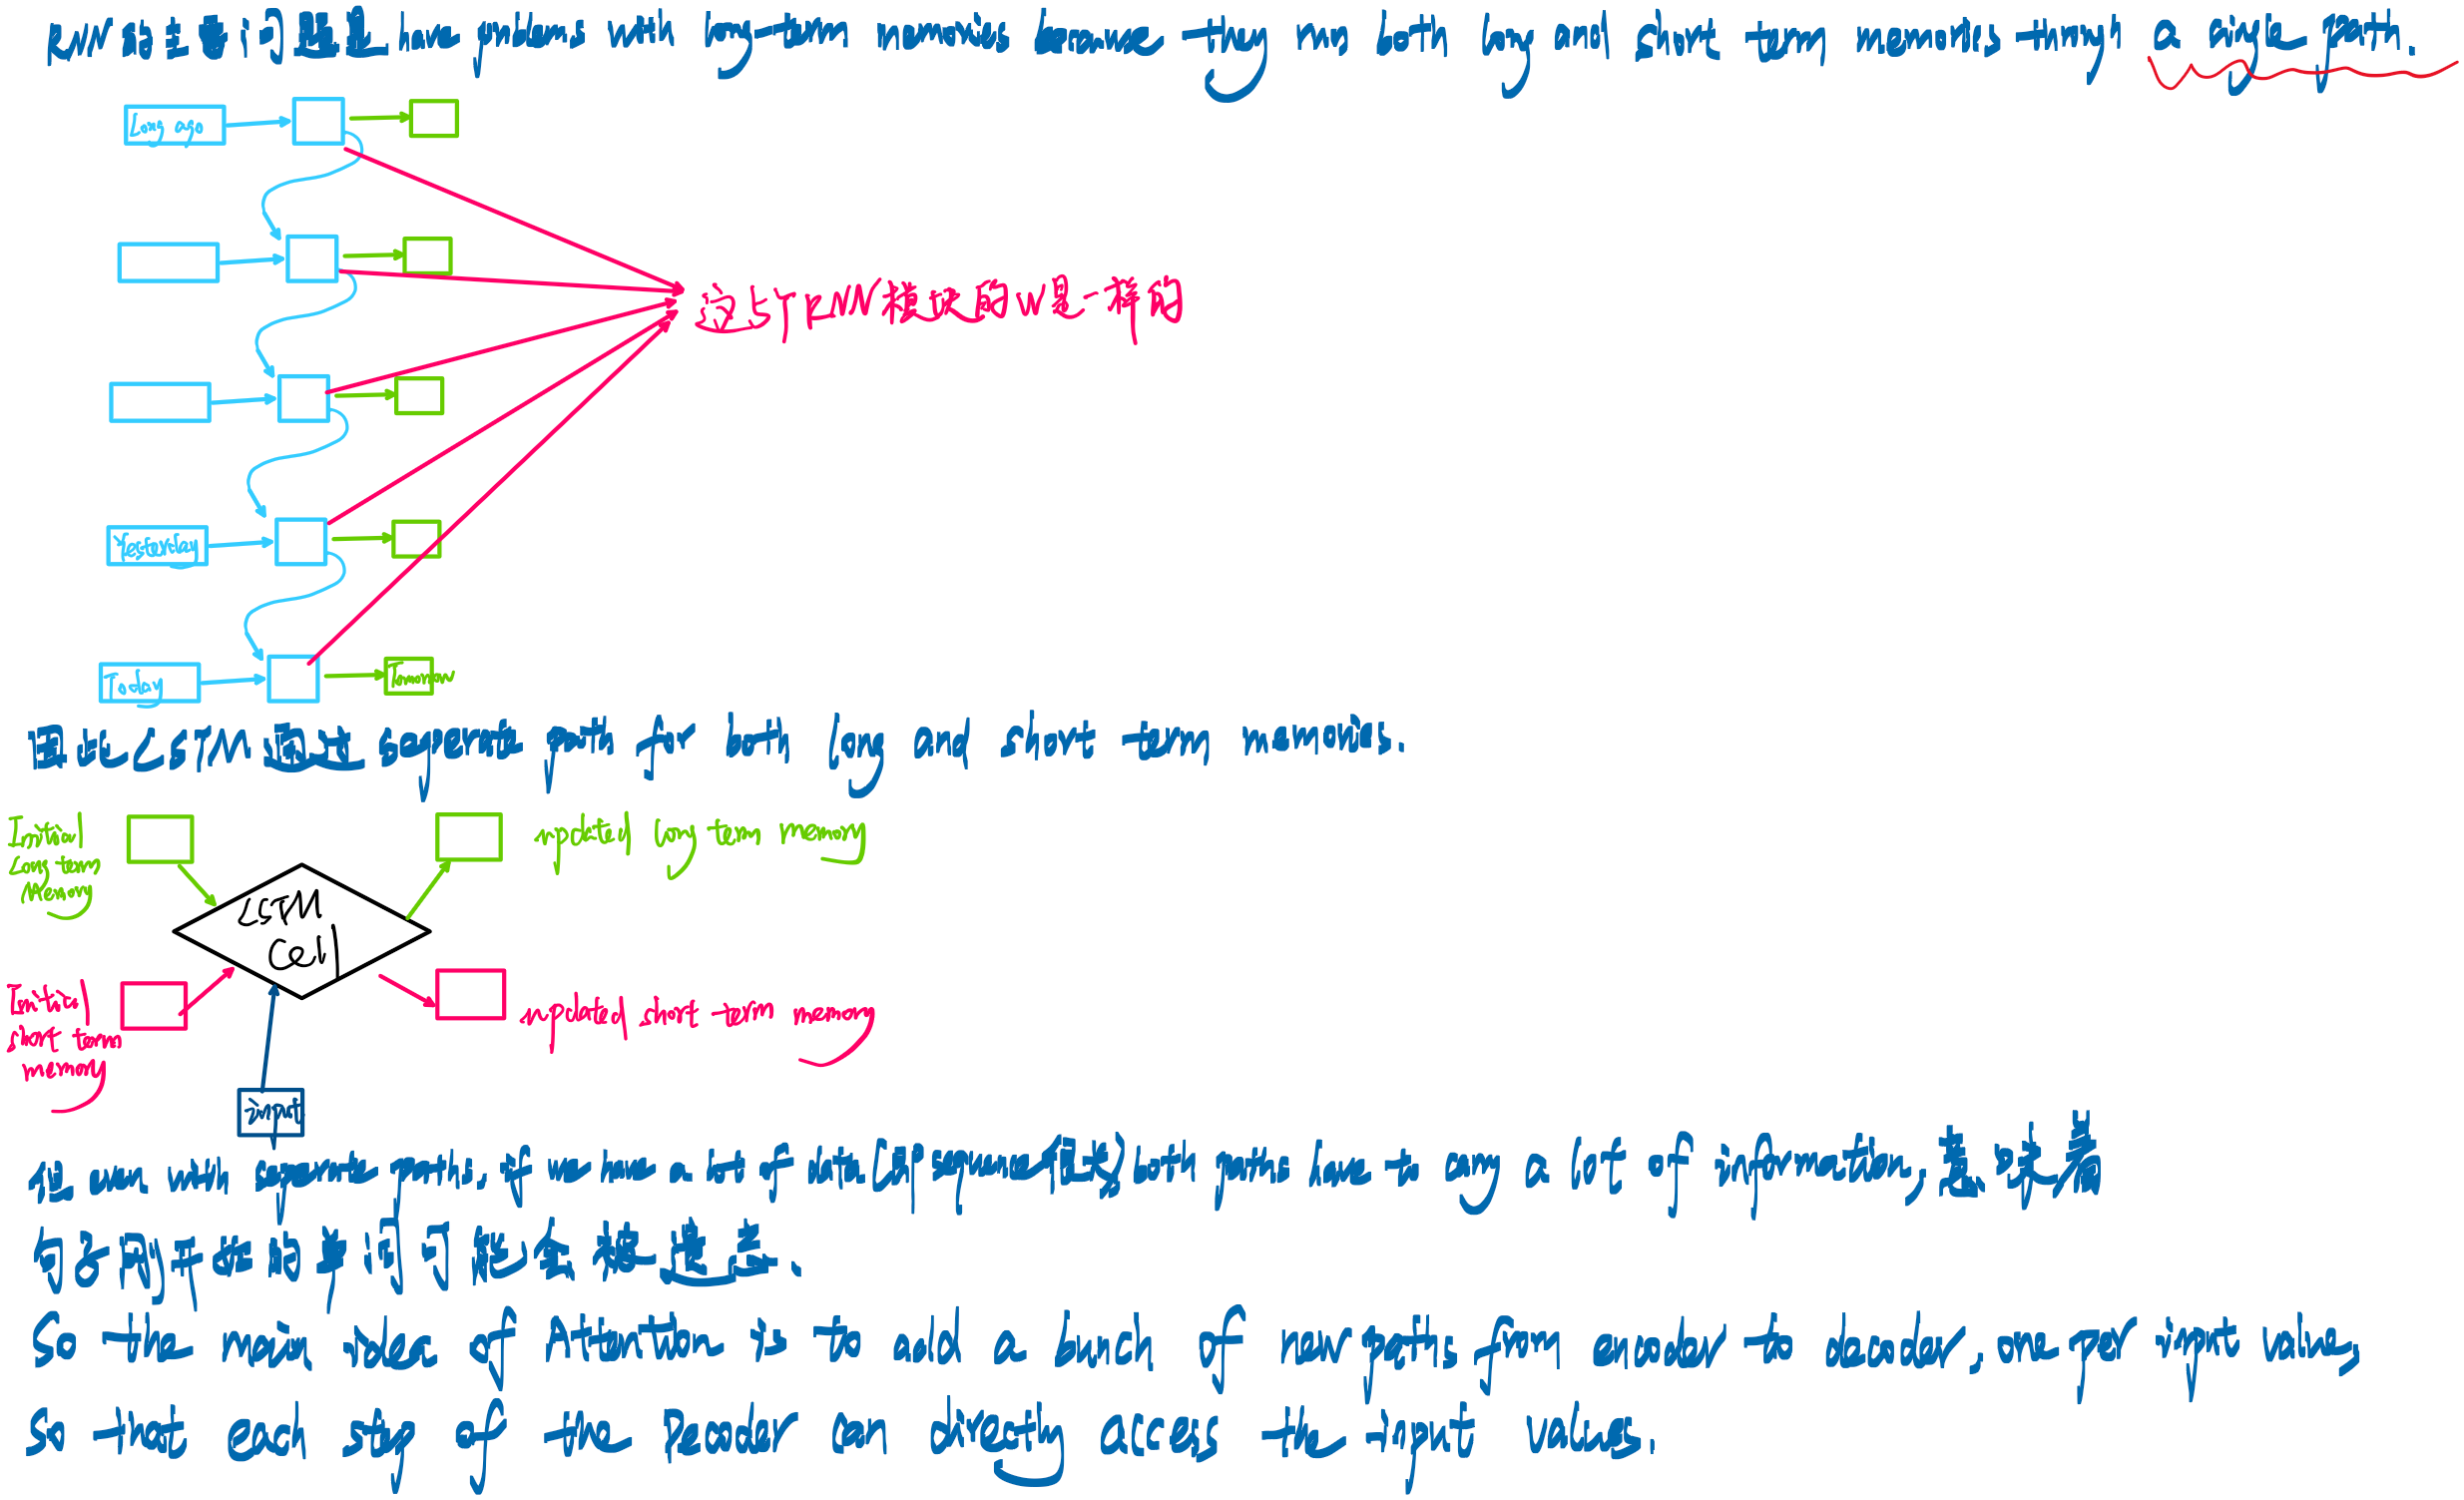 RNN的主要问题是 have problems with long-term memories because they run both long and short term memories through a single path.
Long ago
这5个RNN模块的W是一样的
Yesterday
Today
Tomorrow
因此LSTM通过 seperate path for both long and short term memories.
Initial
Long term
Memory
updated long term memory
LSTM
Cell
Initial
short term
memory
updated short term memory
input
但 even with seperate paths, if we have a lot of data (即sequence很长) both paths have to carry a lot of information, 意味着
句子刚开始的单词可能会被遗忘.
So the main idea of Attention is to add a bunch of new paths from encoder to decoder, one per input value,
so that each step of the Decoder can directly access the input values.